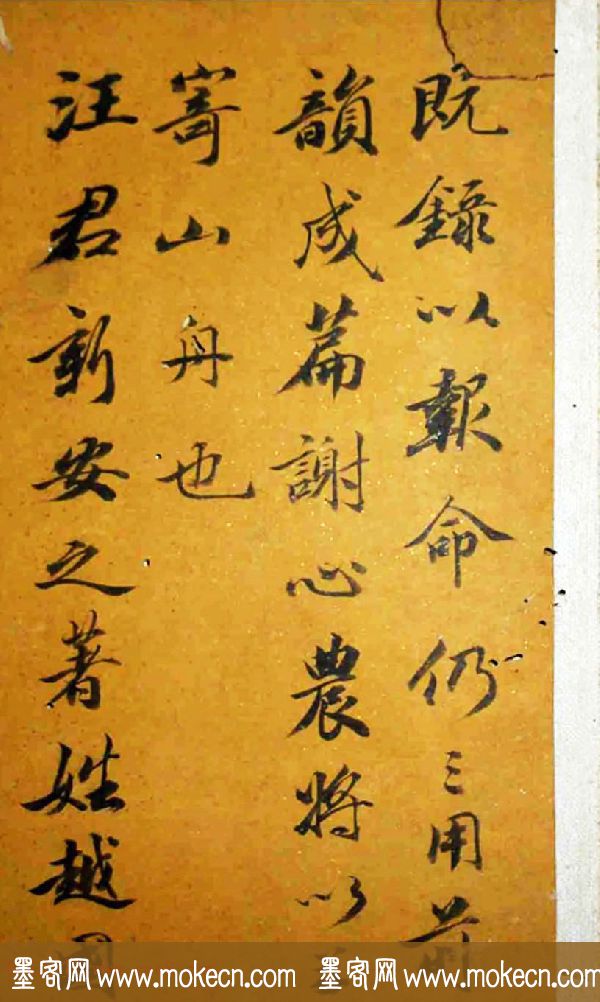 既録以報命仍三用前
韻成篇謝心農將以
寄山舟也
汪君新安之著姓越國
墨客网 www.mokecn.com 墨客网 www.mokecn.com